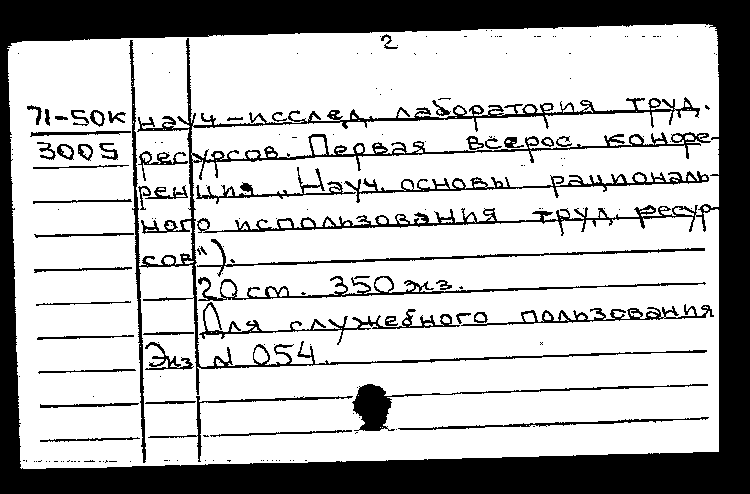 2
71-50к науч-исслед. лаборатория труд.
3005 ресурсов. Первая всерос. конфе-
ренция „Науч. основы рациональ-
ного использования труд. ресур-
сов").
20 ст. 350 экз.
Для служебного пользования
Экз N 054.